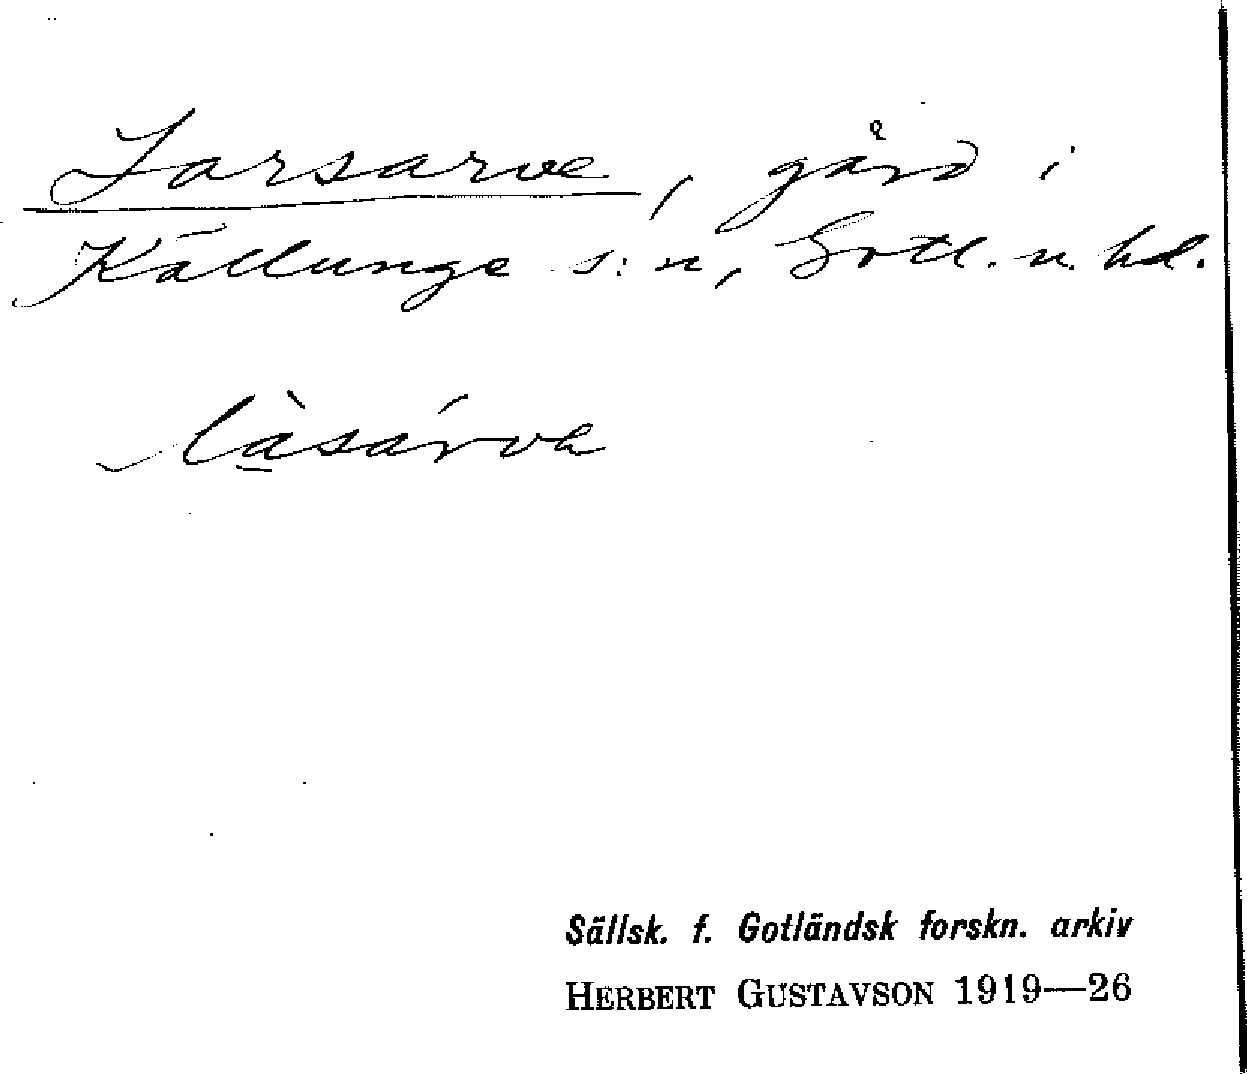 Larsarve, gård i
Källunge s:n, Gotl. n. hd.
làsárvа
Sällsk. f. Gotländsk forskn. arkiv
HERBERT GUSTAVSON 1919—26